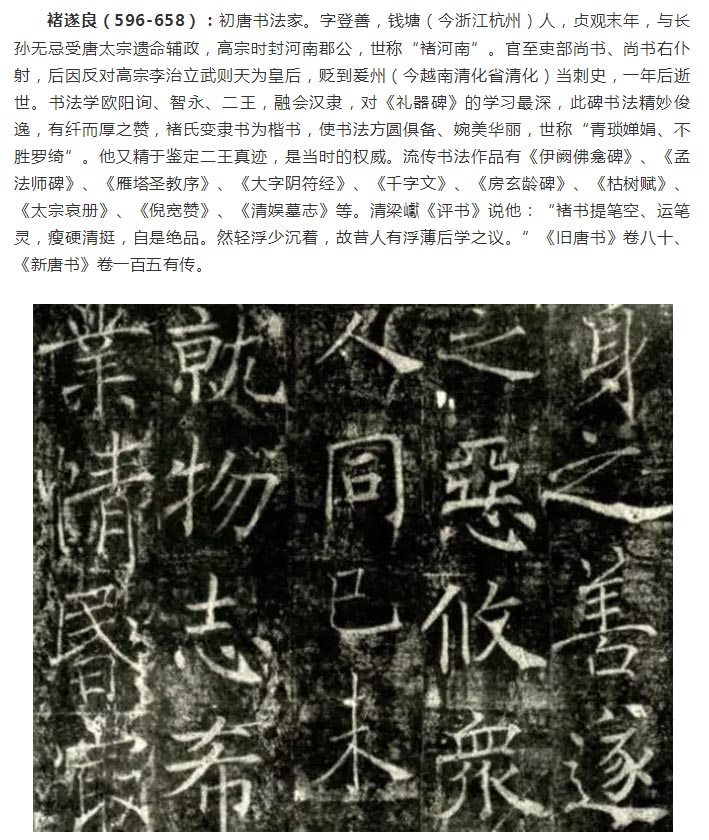 褚遂良（596-658）：初唐书法家。字登善，钱塘（今浙江杭州）人，贞观末年，与长
孙无忌受唐太宗遗命辅政，高宗时封河南郡公，世称“褚河南”。官至吏部尚书、尚书右仆
射，后因反对高宗李治立武则天为皇后，贬到爱州（今越南清化省清化）当刺史，一年后逝
世。书法学欧阳询、智永、二王，融会汉隶，对《礼器碑》的学习最深，此碑书法精妙俊
逸，有纤而厚之赞，褚氏变隶书为楷书，使书法方圆俱备、婉美华丽，世称“青琐婵娟、不
胜罗绮”。他又精于鉴定二王真迹，是当时的权威。流传书法作品有《伊阙佛龛碑》、《孟
法师碑》、《雁塔圣教序》、《大字阴符经》、《千字文》、《房玄龄碑》、《枯树赋》、
《太宗哀册》、《倪宽赞》、《清娱墓志》等。清梁巘《评书》说他：“褚书提笔空、运笔
灵，瘦硬清挺，自是绝品。然轻浮少沉着，故昔人有浮薄后学之议。”《旧唐书》卷八十、
《新唐书》卷一百五有传。
身之善遂
之惡攸衆
人同已未
就物志希
業情昬